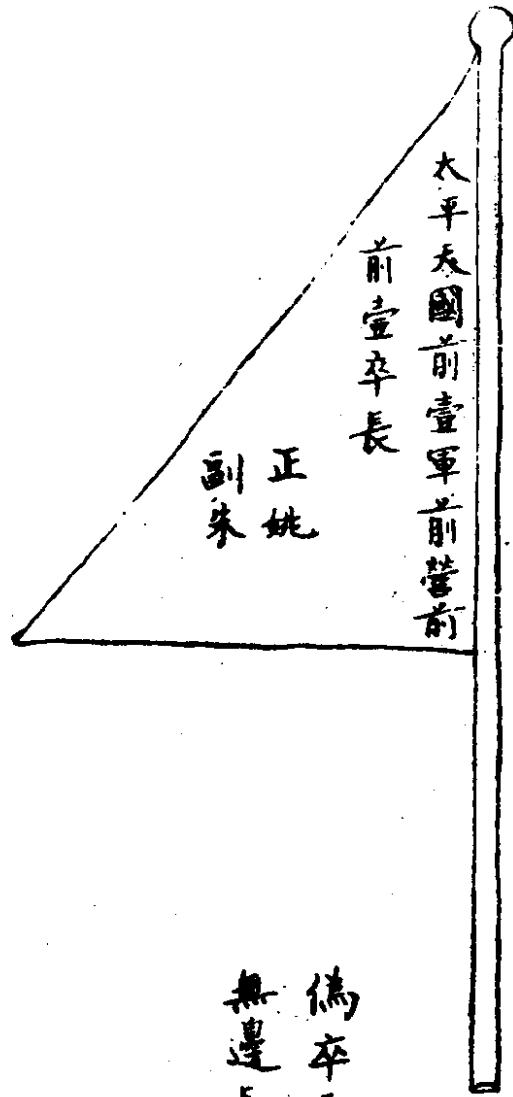 太平天國前壹軍前營前
前壹卒長
正姚
副朱
偽卒
無邊